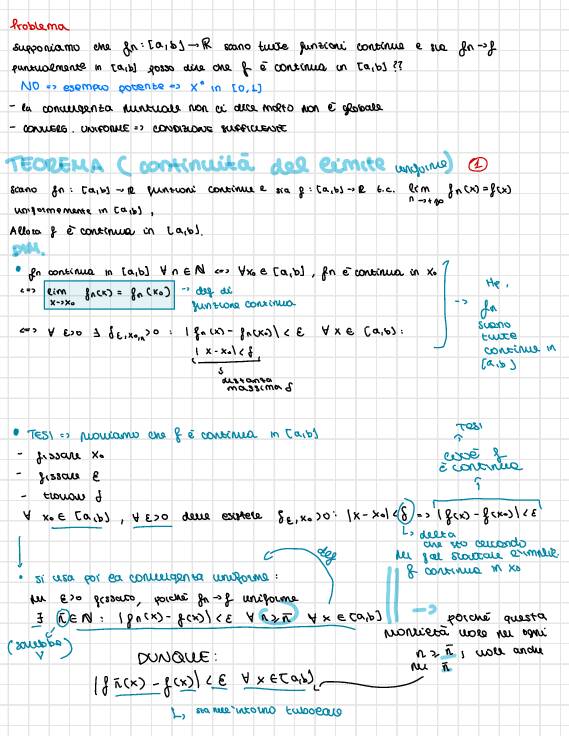 Problema
Supponiamo che fn: [a,b] → R siano tutte funzioni continue e sia fn → f
puntualmente in [a,b] posso dire che f è continua in [a,b] ??
NO => esempio potente => xⁿ in [0,1]
- la convergenza puntuale non ci dice molto non è globale
- CONVERG. UNIFORME => CONDIZIONE SUFFICIENTE
TEOREMA ( continuità del limite uniforme) ①
siano fn: [a,b] → R funzioni continue e sia f: [a,b] → R t.c. lim n→+∞ fn(x) = f(x)
uniformemente in [a,b],
Allora f è continua in [a,b].
DIM.
• fn continua in [a,b] ∀ n ∈ N <=> ∀x₀ ∈ [a,b], fn è continua in x₀
<=> lim x→x₀ fn(x) = fn(x₀) → def di
funzione continua
<=> ∀ ε>0 ∃ δε,x₀,n>0 : |fn(x) - fn(x₀)| < ε ∀ x ∈ [a,b]:
|x - x₀| < δ
δ
distanza
massima δ
→ Hp.
fn
siano
tutte
continue in
[a,b]
• TESI => proviamo che f è continua in [a,b]
- fissare x₀
- fissare ε
- trovare δ
TESI
cioè f
è continua
∀ x₀ ∈ [a,b], ∀ ε>0 deve esistere δε,x₀>0: |x-x₀| < δ => |f(x) - f(x₀)| < ε
↳ delta
che sto cercando
per far
f continua in x₀
• si usa poi la convergenza uniforme:
def
per ε>0 fissato, poiché fn → f uniforme
∃ n̄ ∈ N : |fn(x) - f(x)| < ε ∀ n ≥ n̄ ∀ x ∈ [a,b]
(sarebbe)
ν
→ poiché questa
proprietà vale per ogni
n ≥ n̄, vale anche
per n̄
DUNQUE:
|f n̄(x) - f(x)| < ε ∀ x ∈ [a,b]
↳ sia nell'intorno tubolare